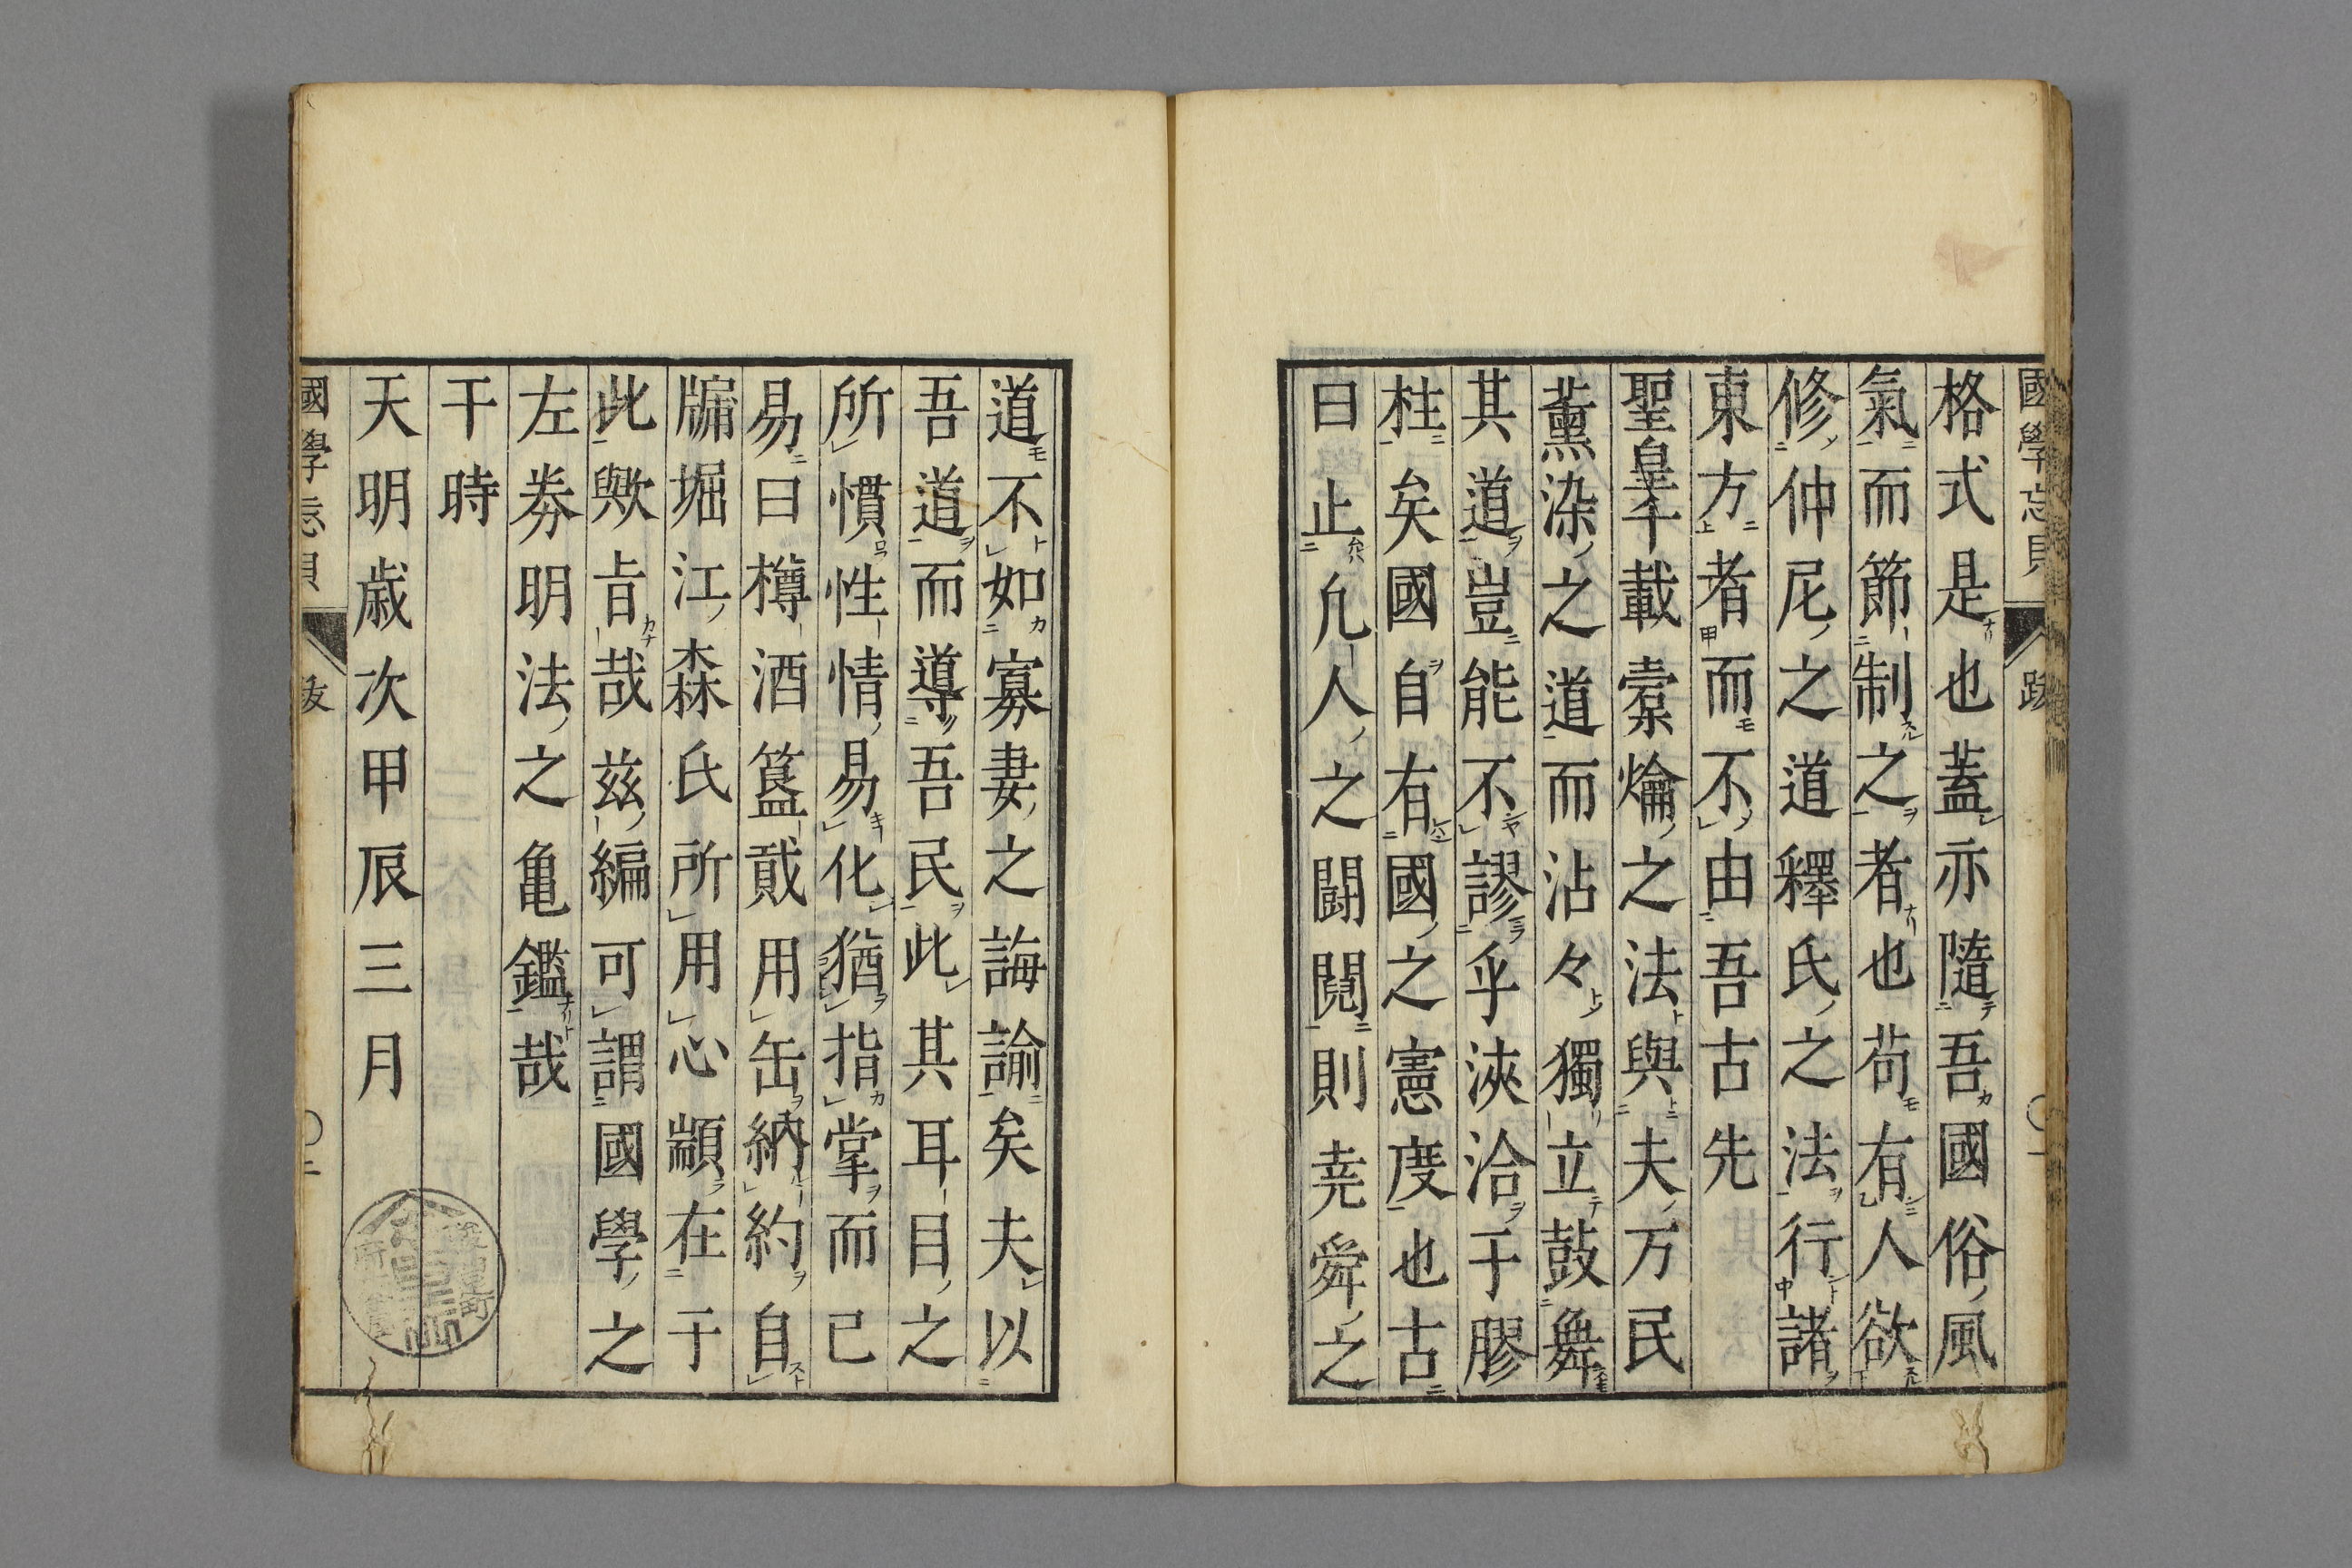 格式是也蓋亦隨吾國俗風
氣而節制之者也苟有人欲
修仲尼之道釋氏之法行諸
東方者而不由吾古先
聖皇千載橐爚之法與夫万民
薫染之道而沾々獨立鼓舞
其道豈能不謬乎浹洽于膠
柱矣國自有國之憲度也古
曰止凢人之鬪鬩則尭舜之
道不如寡妻之誨諭矣夫以
吾道而導吾民此其耳目之
所慣性情易化猶指掌而已
易曰樽酒簋貳用缶納約自
牖堀江森氏所用心顓在于
此歟旹哉茲編可謂國學之
左券明法之亀鑑哉
干時
天明歳次甲辰三月